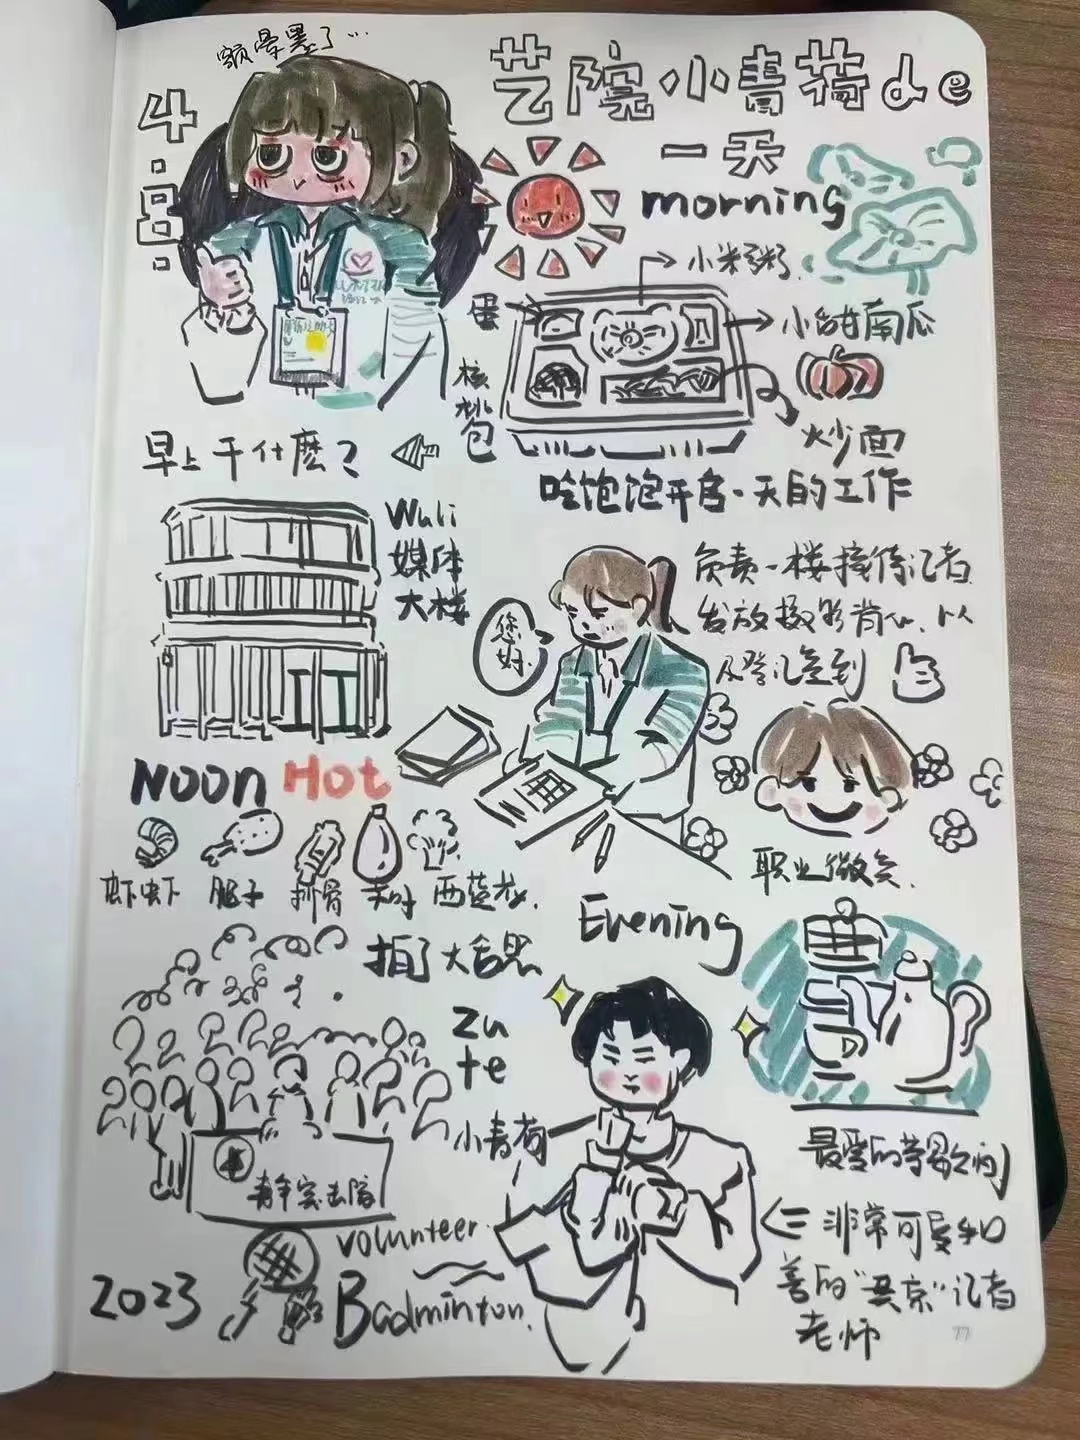 额晕墨了…
4.8.
艺院小青荷de
一天
morning
小米粥.
蛋
小甜南瓜
核桃包
炒面
早上干什么？
吃饱饱开启一天的工作
Wuli
媒体
大楼
您好
负责一楼接待记者
发放摄影背心、以
及登记签到
职业微笑.
NOON Hot
虾虾
排骨
西蓝花.
拍了大合照
zu
te
小青荷
Evening
最爱的茶歇间
非常可爱和
善的“共京”记者
老师
volunteer
Badminton.
2023
77